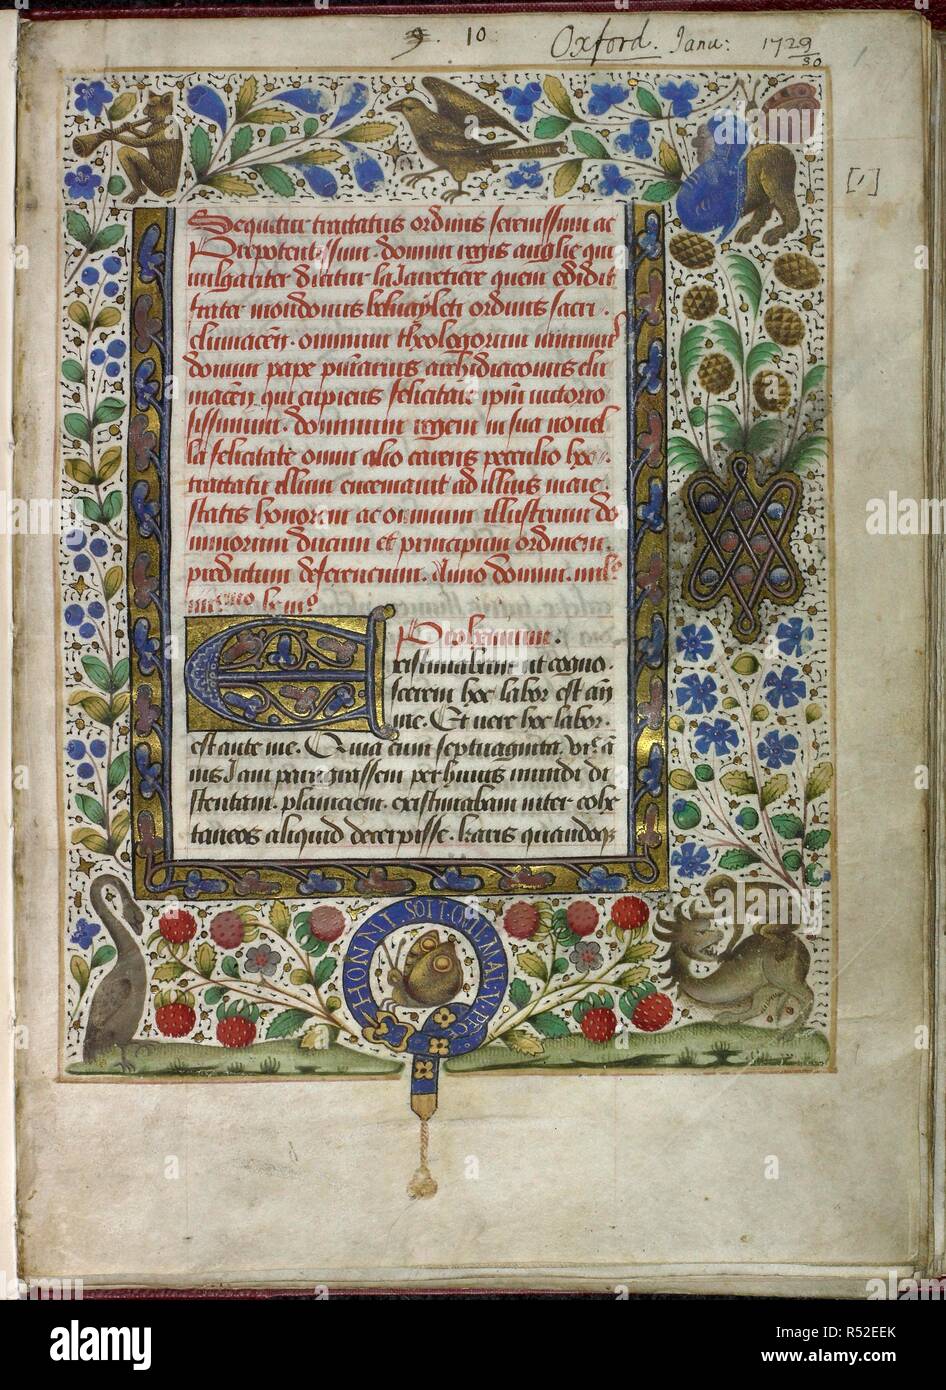 9. 10 Oxford. Janu: 1729/30
[1]
Sequitur tractatus ordinis serenissimi ac
Prepotentissimi. domini regis anglie qui
vulgariter dicitur la Jarretiere quem edidit
frater mondonus belvaleti ordinis sacri.
cluniaceñ. omnium theologorum minimus
domini pape archidiaconus clu
maceñ qui cupiens felicitare ipm victorio
sissimum. dominum regem in sua novel
la felicitate omni alio carens peculio hoc
tractatu illum encemavit ad illius maie
statis honorem ac omnium illustrium do
minorum ducum et principum ordinem.
predictum deferencium. Anno domini. mil͏̊
Prohemium.
Existimabam ut cogno.
scerem hoc labor est an̄
me. Et vere hoc labor.
est ante me. Quia cum septuaginta
nis Jam peragrassem per huius mundi di
stentam. planiciem. existimabam inter cohe
taneos aliquid decerpisse. kATis quandoq̢
HONNI. SOIT. QUI. MAL. Y. PECE
alamy
Image ID: R52EEK
www.alamy.com